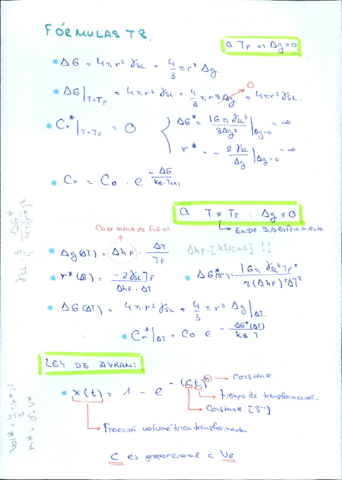 FÓRMULAS T8.
a TF ⇒ Δg=0
• ΔG = 4πr² γSL + 4/3 πr³ Δg
• ΔG|T=TF = 4πr² γSL + 4/3 πr³ Δg = 4πr² γSL
0
• Cr*|T=TF = 0
ΔG* = 16π γSL³ / 3Δg² |Δg=0 = ∞
r* = -2 γSL / Δg |Δg=0 = ∞
• Cr = Co · e
a T≠TF : Δg≠0
Existe Subenfriamiento
• Δg(ΔT) = ΔhF · ΔT / TF
• r*(ΔT) = -2γSL TF / ΔhF · ΔT
ΔG*(ΔT) = 16π γSL³ TF² / 3(ΔhF)² ΔT²
• ΔG(ΔT) = 4πr² γSL + 4/3 πr³ Δg|ΔT
• Cr*|ΔT = Co e - ΔG*(ΔT) / kB T
LEY DE AVRAMI
• X(t) = 1 - e -(Gt)
Constante
tiempo de transformación
Constante [s⁻¹]
Fracción volumétrica transformada
C es proporcional a Ve